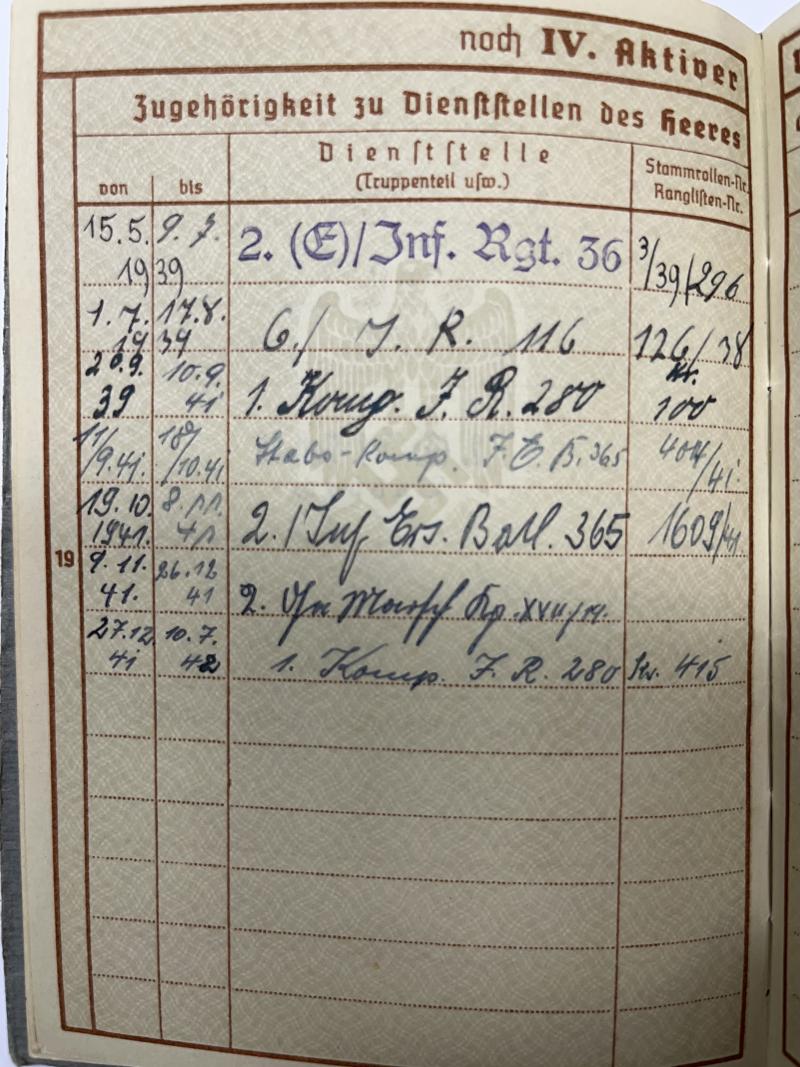 noch IV. Aktiver
Zugehörigkeit zu Dienststellen des Heeres
von
bis
Dienststelle
(Truppenteil usw.)
Stammrollen-Nr.
Ranglisten-Nr.
15.5. 9.7. 2. (E)/Inf. Rgt. 36 3/39/296
19 39
1.7. 17.8. 6./ J. R. 116 126/38
19 39
20.9. 10.9. 1. Komp. J. R. 280 Nr.
39 41 100
11/ 18/ Stabs-Komp. J. E. B. 365 404/
/9.41. /10.41 /41.
19.10. 8.11. 2./Inf Ers. Batl. 365 1609/41.
1941. 41
19
9.11. 26.12 2.
41. 41
27.12. 10.7. 1. Komp. J. R. 280 415
41 42